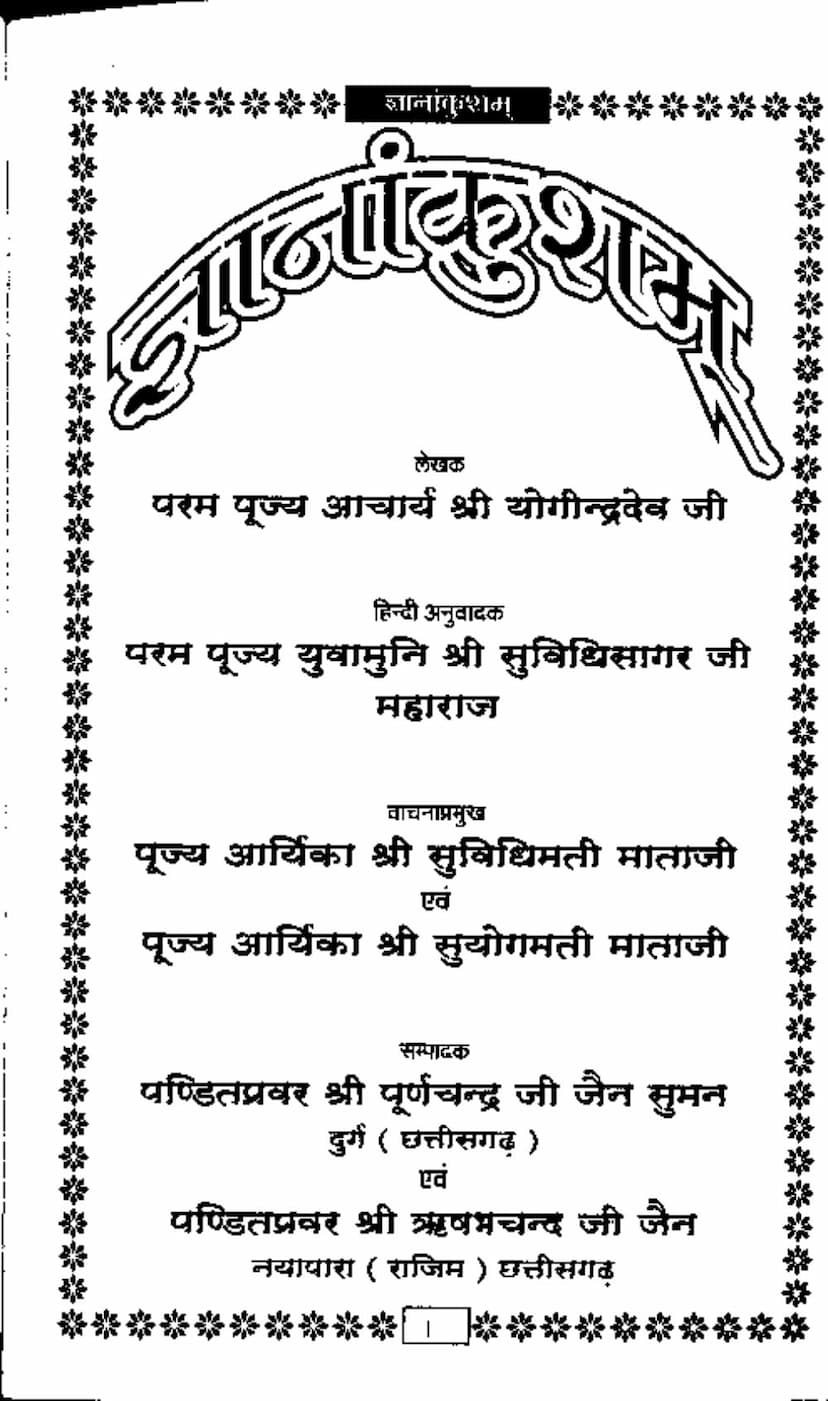 ज्ञानांकुशम्
ज्ञानांकुशम्
लेखक
परम पूज्य आचार्य श्री योगीन्द्रदेव जी
हिन्दी अनुवादक
परम पूज्य युवामुनि श्री सुविधिसागर जी
महाराज
वाचनाप्रमुख
पूज्य आर्यिका श्री सुविधिमती माताजी
एवं
पूज्य आर्यिका श्री सुयोगमती माताजी
सम्पादक
पण्डितप्रवर श्री पूर्णचन्द्र जी जैन सुमन
दुर्ग ( छत्तीसगढ़ )
एवं
पण्डितप्रवर श्री ऋषभचन्द जी जैन
नयापारा ( राजिम ) छत्तीसगढ़
।